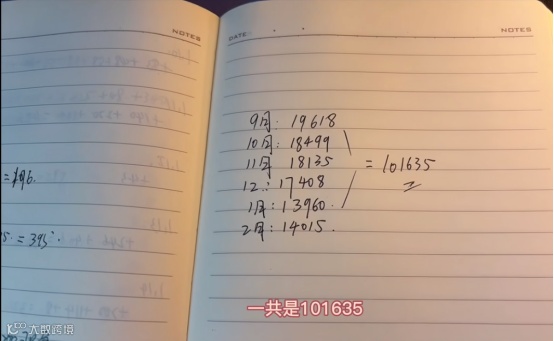 NOTES
=196.
= 395.
DATE:
NOTES
9月: 19618
10月: 18499
11月 18135
= 101635
12.: 17408
1月: 13960.
2月: 14015.
一共是101635
大数跨境